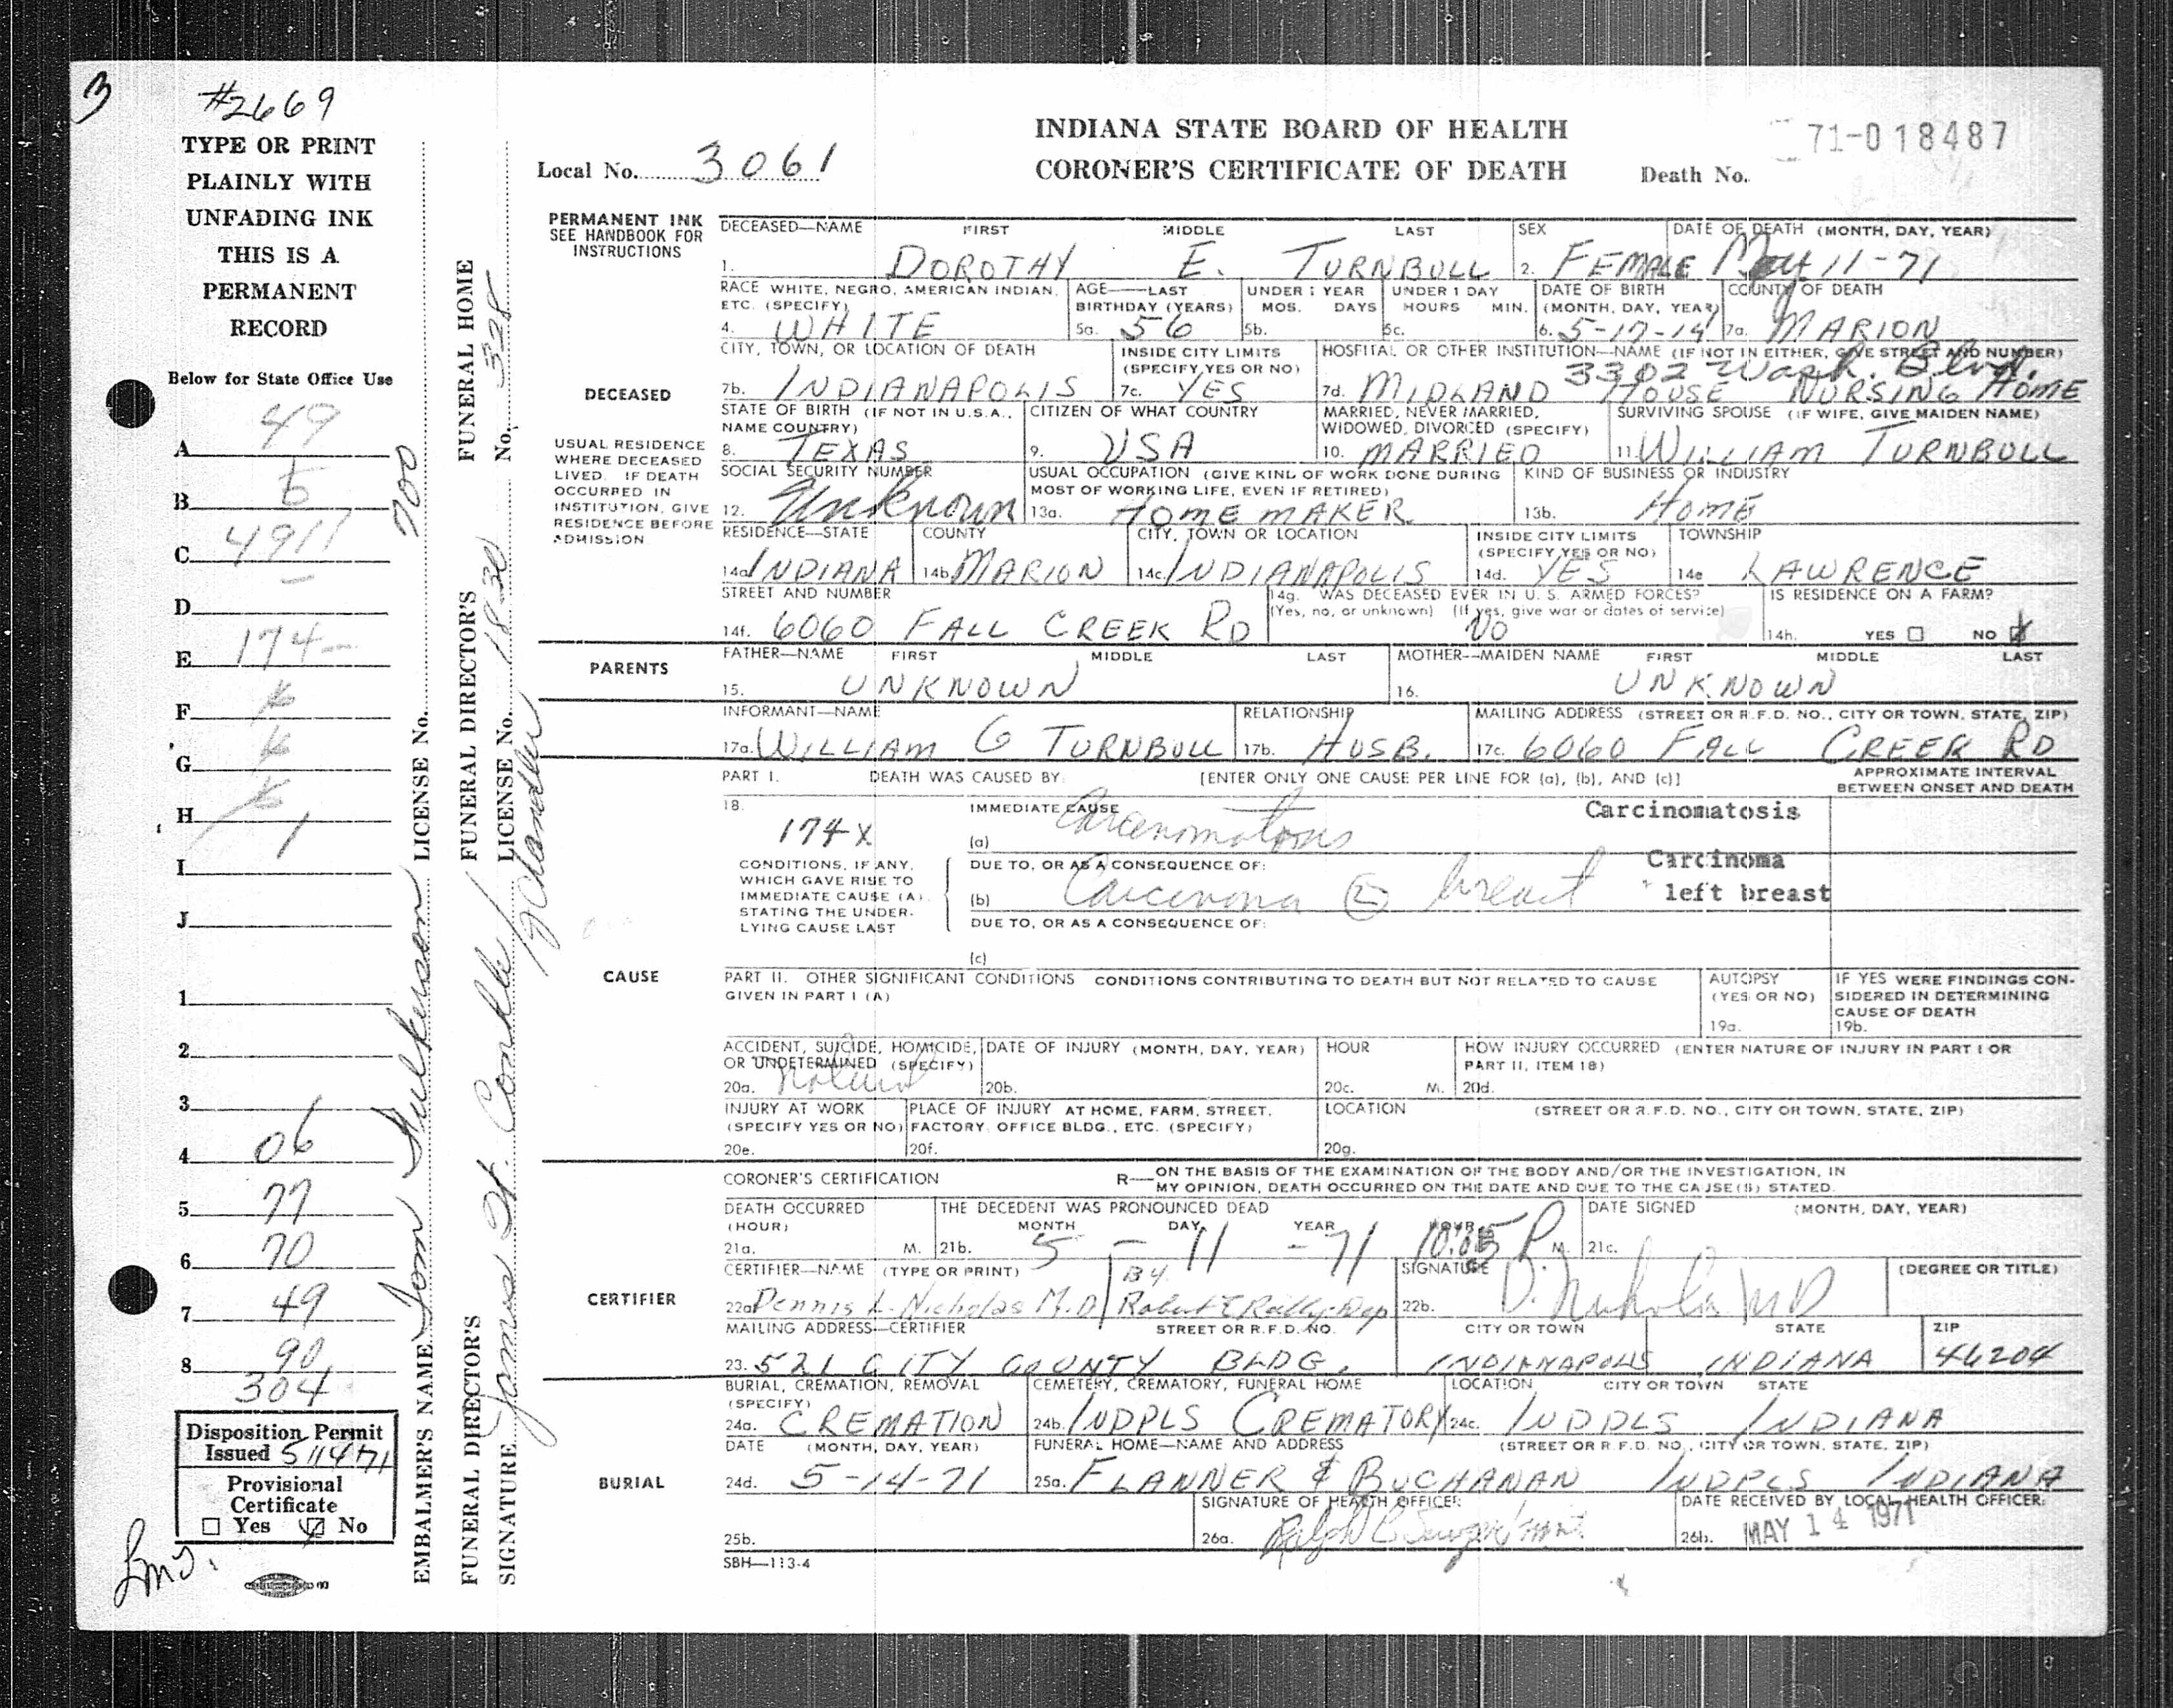 3
#2669
TYPE OR PRINT
PLAINLY WITH
UNFADING INK
THIS IS A
PERMANENT
RECORD
Below for State Office Use
A 49
B
C 4911
D
E 174-
F
G
H
I 1
J
1
2
3
4 06
5 77
6 70
7 49
8 90
304
Disposition Permit
Issued 5/14/71
Provisional
Certificate
☐ Yes ☑ No
EMBALMER'S NAME Tom Fulkerson LICENSE No. 700
FUNERAL DIRECTOR'S SIGNATURE James St. FUNERAL DIRECTOR'S LICENSE No. 1830 FUNERAL HOME No. 328
INDIANA STATE BOARD OF HEALTH
CORONER'S CERTIFICATE OF DEATH
Local No. 3061
Death No. 71-018487
PERMANENT INK
SEE HANDBOOK FOR
INSTRUCTIONS
DECEASED—NAME FIRST MIDDLE LAST SEX DATE OF DEATH (MONTH, DAY, YEAR)
1. DOROTHY E. TURNBULL 2. FEMALE May 11-71
RACE WHITE, NEGRO, AMERICAN INDIAN, AGE—LAST UNDER 1 YEAR UNDER 1 DAY DATE OF BIRTH COUNTY OF DEATH
ETC. (SPECIFY) BIRTHDAY (YEARS) MOS. DAYS HOURS MIN. (MONTH, DAY, YEAR)
4. WHITE 5a. 56 5b. 5c. 6. 5-17-14 7a. MARION
CITY, TOWN, OR LOCATION OF DEATH INSIDE CITY LIMITS HOSPITAL OR OTHER INSTITUTION—NAME (IF NOT IN EITHER, GIVE STREET AND NUMBER)
(SPECIFY YES OR NO) 3302 Wash. Blvd.
DECEASED
7b. INDIANAPOLIS 7c. YES 7d. MIDLAND HOUSE NURSING HOME
STATE OF BIRTH (IF NOT IN U.S.A., CITIZEN OF WHAT COUNTRY MARRIED, NEVER MARRIED, SURVIVING SPOUSE (IF WIFE, GIVE MAIDEN NAME)
NAME COUNTRY) WIDOWED, DIVORCED (SPECIFY)
8. TEXAS 9. USA 10. MARRIED 11. WILLIAM TURNBULL
USUAL RESIDENCE
WHERE DECEASED
LIVED. IF DEATH
OCCURRED IN
INSTITUTION, GIVE
RESIDENCE BEFORE
ADMISSION
SOCIAL SECURITY NUMBER USUAL OCCUPATION (GIVE KIND OF WORK DONE DURING KIND OF BUSINESS OR INDUSTRY
MOST OF WORKING LIFE, EVEN IF RETIRED)
12. Unknown 13a. HOMEMAKER 13b. HOME
RESIDENCE—STATE COUNTY CITY, TOWN OR LOCATION INSIDE CITY LIMITS TOWNSHIP
(SPECIFY YES OR NO)
14a. INDIANA 14b. MARION 14c. INDIANAPOLIS 14d. YES 14e LAWRENCE
STREET AND NUMBER 14g. WAS DECEASED EVER IN U. S. ARMED FORCES? IS RESIDENCE ON A FARM?
(Yes, no, or unknown) (If yes, give war or dates of service)
14f. 6060 FALL CREEK RD NO 14h. YES ☐ NO ☑
PARENTS
FATHER—NAME FIRST MIDDLE LAST MOTHER—MAIDEN NAME FIRST MIDDLE LAST
15. UNKNOWN 16. UNKNOWN
INFORMANT—NAME RELATIONSHIP MAILING ADDRESS (STREET OR R.F.D. NO., CITY OR TOWN, STATE, ZIP)
17a. WILLIAM G TURNBULL 17b. HUSB. 17c. 6060 FALL CREEK RD
PART I. DEATH WAS CAUSED BY: [ENTER ONLY ONE CAUSE PER LINE FOR (a), (b), AND (c)] APPROXIMATE INTERVAL
BETWEEN ONSET AND DEATH
18. IMMEDIATE CAUSE Carcinomatosis
174X (a) Carcinomatosis
CONDITIONS, IF ANY,
WHICH GAVE RISE TO
IMMEDIATE CAUSE (A)
STATING THE UNDER-
LYING CAUSE LAST
DUE TO, OR AS A CONSEQUENCE OF: Carcinoma
(b) Carcinoma Ⓛ breast left breast
DUE TO, OR AS A CONSEQUENCE OF:
(c)
CAUSE
PART II. OTHER SIGNIFICANT CONDITIONS CONDITIONS CONTRIBUTING TO DEATH BUT NOT RELATED TO CAUSE
GIVEN IN PART I (A)
AUTOPSY
(YES OR NO)
19a.
IF YES WERE FINDINGS CON-
SIDERED IN DETERMINING
CAUSE OF DEATH
19b.
ACCIDENT, SUICIDE, HOMICIDE, DATE OF INJURY (MONTH, DAY, YEAR) HOUR HOW INJURY OCCURRED (ENTER NATURE OF INJURY IN PART I OR
OR UNDETERMINED (SPECIFY) PART II, ITEM 18)
20a. Natural 20b. 20c. M. 20d.
INJURY AT WORK PLACE OF INJURY AT HOME, FARM, STREET, LOCATION (STREET OR R.F.D. NO., CITY OR TOWN, STATE, ZIP)
(SPECIFY YES OR NO) FACTORY, OFFICE BLDG., ETC. (SPECIFY)
20e. 20f. 20g.
CORONER'S CERTIFICATION R— ON THE BASIS OF THE EXAMINATION OF THE BODY AND/OR THE INVESTIGATION, IN
MY OPINION, DEATH OCCURRED ON THE DATE AND DUE TO THE CAUSE(S) STATED.
DEATH OCCURRED THE DECEDENT WAS PRONOUNCED DEAD DATE SIGNED (MONTH, DAY, YEAR)
(HOUR) MONTH DAY YEAR HOUR
21a. M. 21b. 5 - 11 - 71 P M. 21c.
CERTIFIER
CERTIFIER—NAME (TYPE OR PRINT) By SIGNATURE (DEGREE OR TITLE)
22a. Dennis L. Nicholas M.D. Robert E 22b. D. Nicholas MD
MAILING ADDRESS—CERTIFIER STREET OR R.F.D. NO. CITY OR TOWN STATE ZIP
23. 521 CITY COUNTY BLDG. INDIANAPOLIS INDIANA 46204
BURIAL, CREMATION, REMOVAL CEMETERY, CREMATORY, FUNERAL HOME LOCATION CITY OR TOWN STATE
(SPECIFY)
24a. CREMATION 24b. INDPLS CREMATORY 24c. INDPLS INDIANA
BURIAL
DATE (MONTH, DAY, YEAR) FUNERAL HOME—NAME AND ADDRESS (STREET OR R.F.D. NO., CITY OR TOWN, STATE, ZIP)
24d. 5-14-71 25a. FLANNER & BUCHANAN INDPLS INDIANA
SIGNATURE OF HEALTH OFFICER DATE RECEIVED BY LOCAL HEALTH OFFICER
25b. 26a. Ralph 26b. MAY 14 1971
SBH—113-4